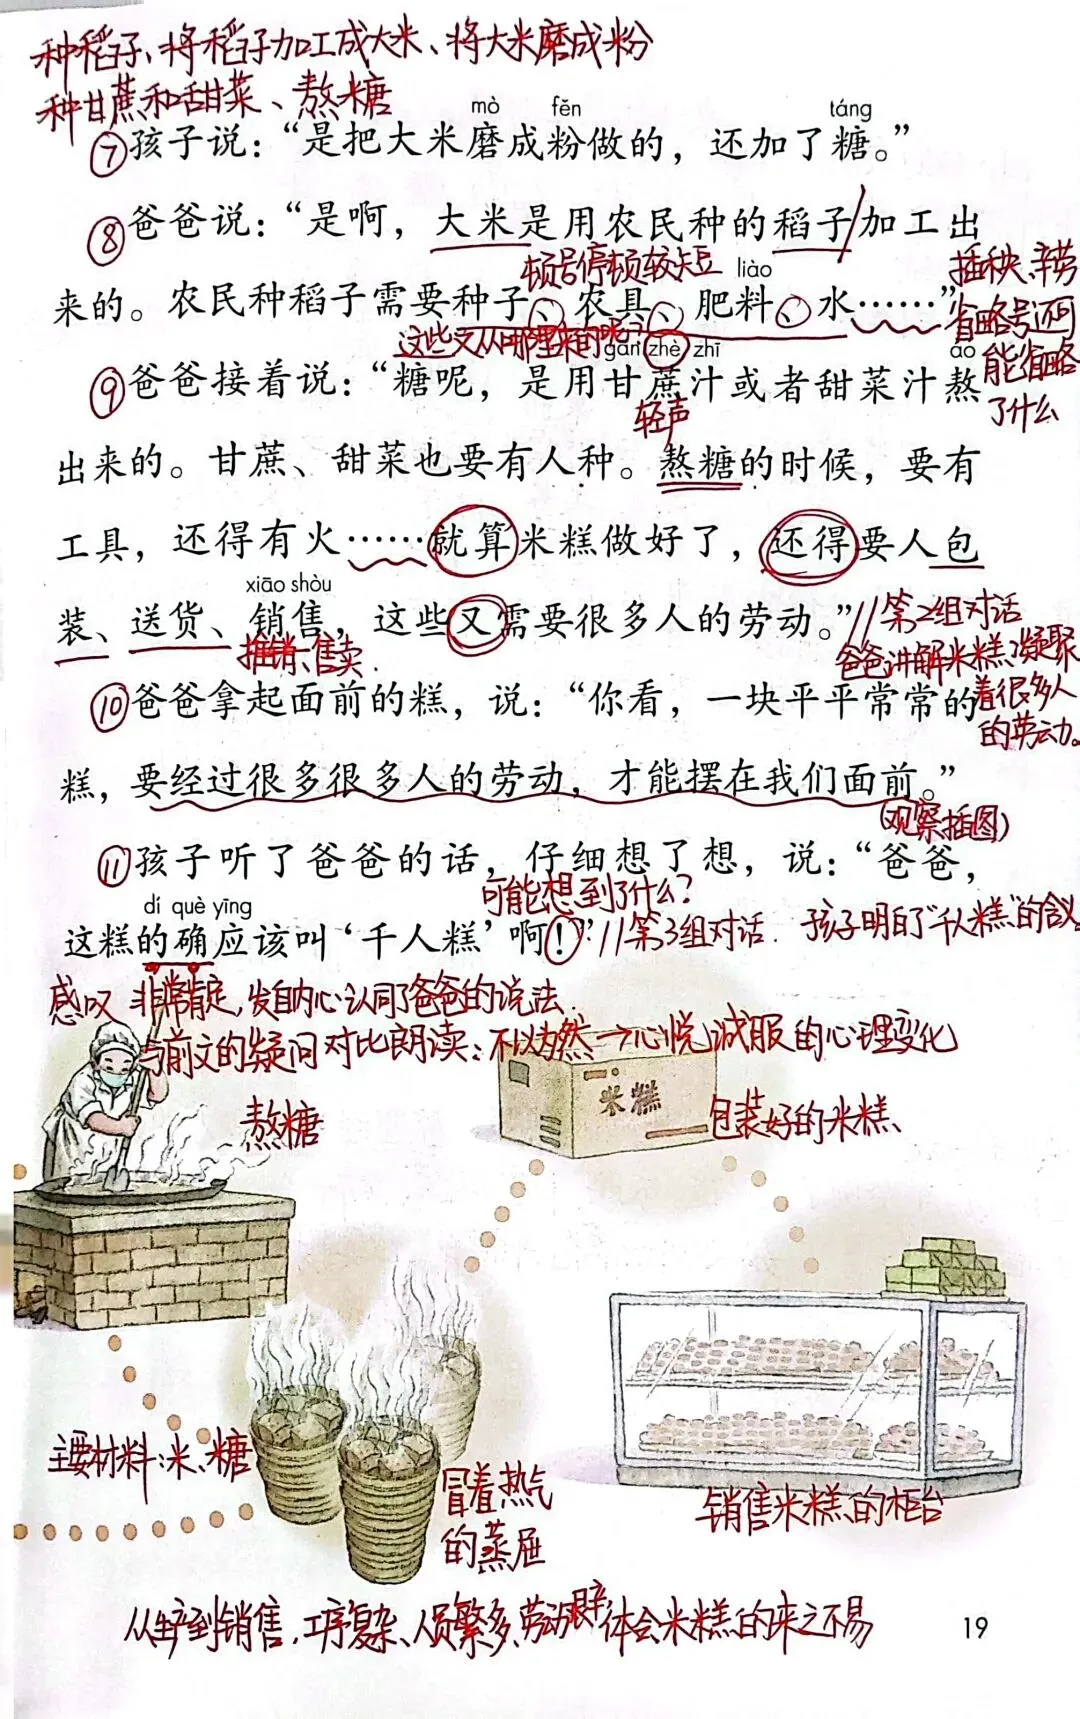 种稻子、将稻子加工成大米、将大米磨成粉
种甘蔗和甜菜、熬糖
mò fěn táng
⑦孩子说：“是把大米磨成粉做的，还加了糖。”
⑧爸爸说：“是啊，大米是用农民种的稻子/加工出
顿号停顿较短
liào
插秧、辛劳
来的。农民种稻子需要种子、农具、肥料、水……”
省略号还可
能省略
了什么
这些又从哪里来的呢？
gān zhè zhī áo
⑨爸爸接着说：“糖呢，是用甘蔗汁或者甜菜汁熬
轻声
出来的。甘蔗、甜菜也要有人种。熬糖的时候，要有
工具，还得有火……就算米糕做好了，还得要人包
xiāo shòu
装、送货、销售，这些又需要很多人的劳动。”//第2组对话
推销、售卖.
爸爸讲解米糕凝聚
着很多人
的劳动。
⑩爸爸拿起面前的糕，说：“你看，一块平平常常的
糕，要经过很多很多人的劳动，才能摆在我们面前。”
(观察插图)
⑪孩子听了爸爸的话，仔细想了想，说：“爸爸，
可能想到了什么？
dí què yīng
这糕的确应该叫‘千人糕’啊！”//第3组对话. 孩子明白了“千人糕”的含义
感叹 非常肯定，发自内心认同了爸爸的说法.
与前文的疑问对比朗读：不以为然→心悦诚服的心理变化
熬糖
米糕
包装好的米糕、
主要材料：米、糖
冒着热气
的蒸屉
销售米糕的柜台
从生产到销售，工序复杂、人员繁多、劳动艰辛，体会米糕的来之不易
19